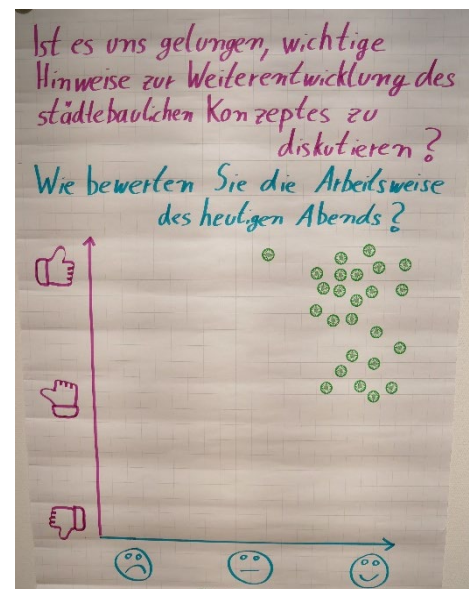 Ist es uns gelungen, wichtige
Hinweise zur Weiterentwicklung des
städtebaulichen Konzeptes zu
diskutieren?
Wie bewerten Sie die Arbeitsweise
des heutigen Abends?